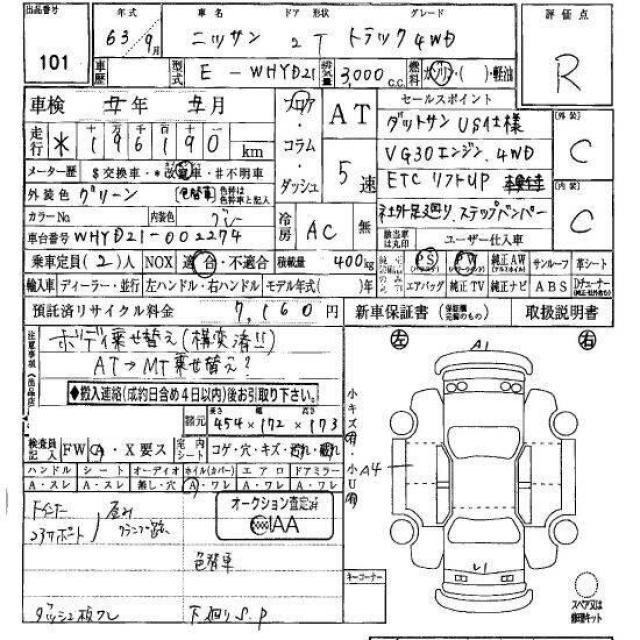 出品番号 年式 車名 ドア 形状 グレード 評価点
101 63/9月 ニッサン 2 T トラック4WD R
車歴 型式 E-WHYD21 排気量 3,000 C.C. 燃料 ガソリン・( )・軽油
車検 年 月 フロア・コラム・ダッシュ AT 5速 セールスポイント
ダットサン US仕様
走行 * 十1万9千6百1十9 0 km
VG30エンジン 4WD
メーター歴 $交換車・*改ざん車・#不明車
ETC リフトUP
外装色 グリーン 色替車 色枠は色替車と記入
社外足廻り、ステップバンパー
カラーNo 内装色 グレー 冷房 AC 無
車台番号 WHYD21-002274 該当車は丸印 ユーザー仕入車
[外装] C
[内装] C
乗車定員(2)人 NOX 適合・不適合 積載量 400kg 純正 PS PW 純正AW サンルーフ 革シート
輸入車 ディーラー・並行 左ハンドル・右ハンドル モデル年式( )年 エアバッグ 純正TV 純正ナビ ABS
預託済リサイクル料金 7,160円 新車保証書(保証欄完備のもの) 取扱説明書
注意事項(出品店)
ボディ乗せ替え(構変済!!)
AT→MT乗せ替え?
◆搬入連絡(成約日含め4日以内)後お引取り下さい。
諸元 長さ 幅 高さ 454×172×173
検査員記入 FW A・X要ス 内シート コゲ・穴・キズ・汚れ・破れ
ハンドル シート オーディオ ホイル(カバー) エアロ ドアミラー
A・スレ A・スレ 無し・穴 A・ワレ A・ワレ A・ワレ
オークション査定済
IAA
色替車
ダッシュ板ワレ 下廻りS.P
小キズ有・小U有
キーコーナー
左 A1 右
A4
レ1
スペア又は修理キット